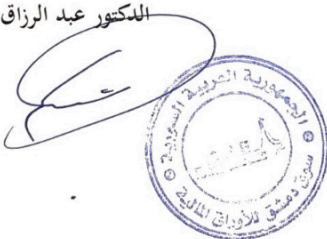 الدكتور عبد الرزاق
الجمهورية العربية السورية
سوق دمشق للأوراق المالية